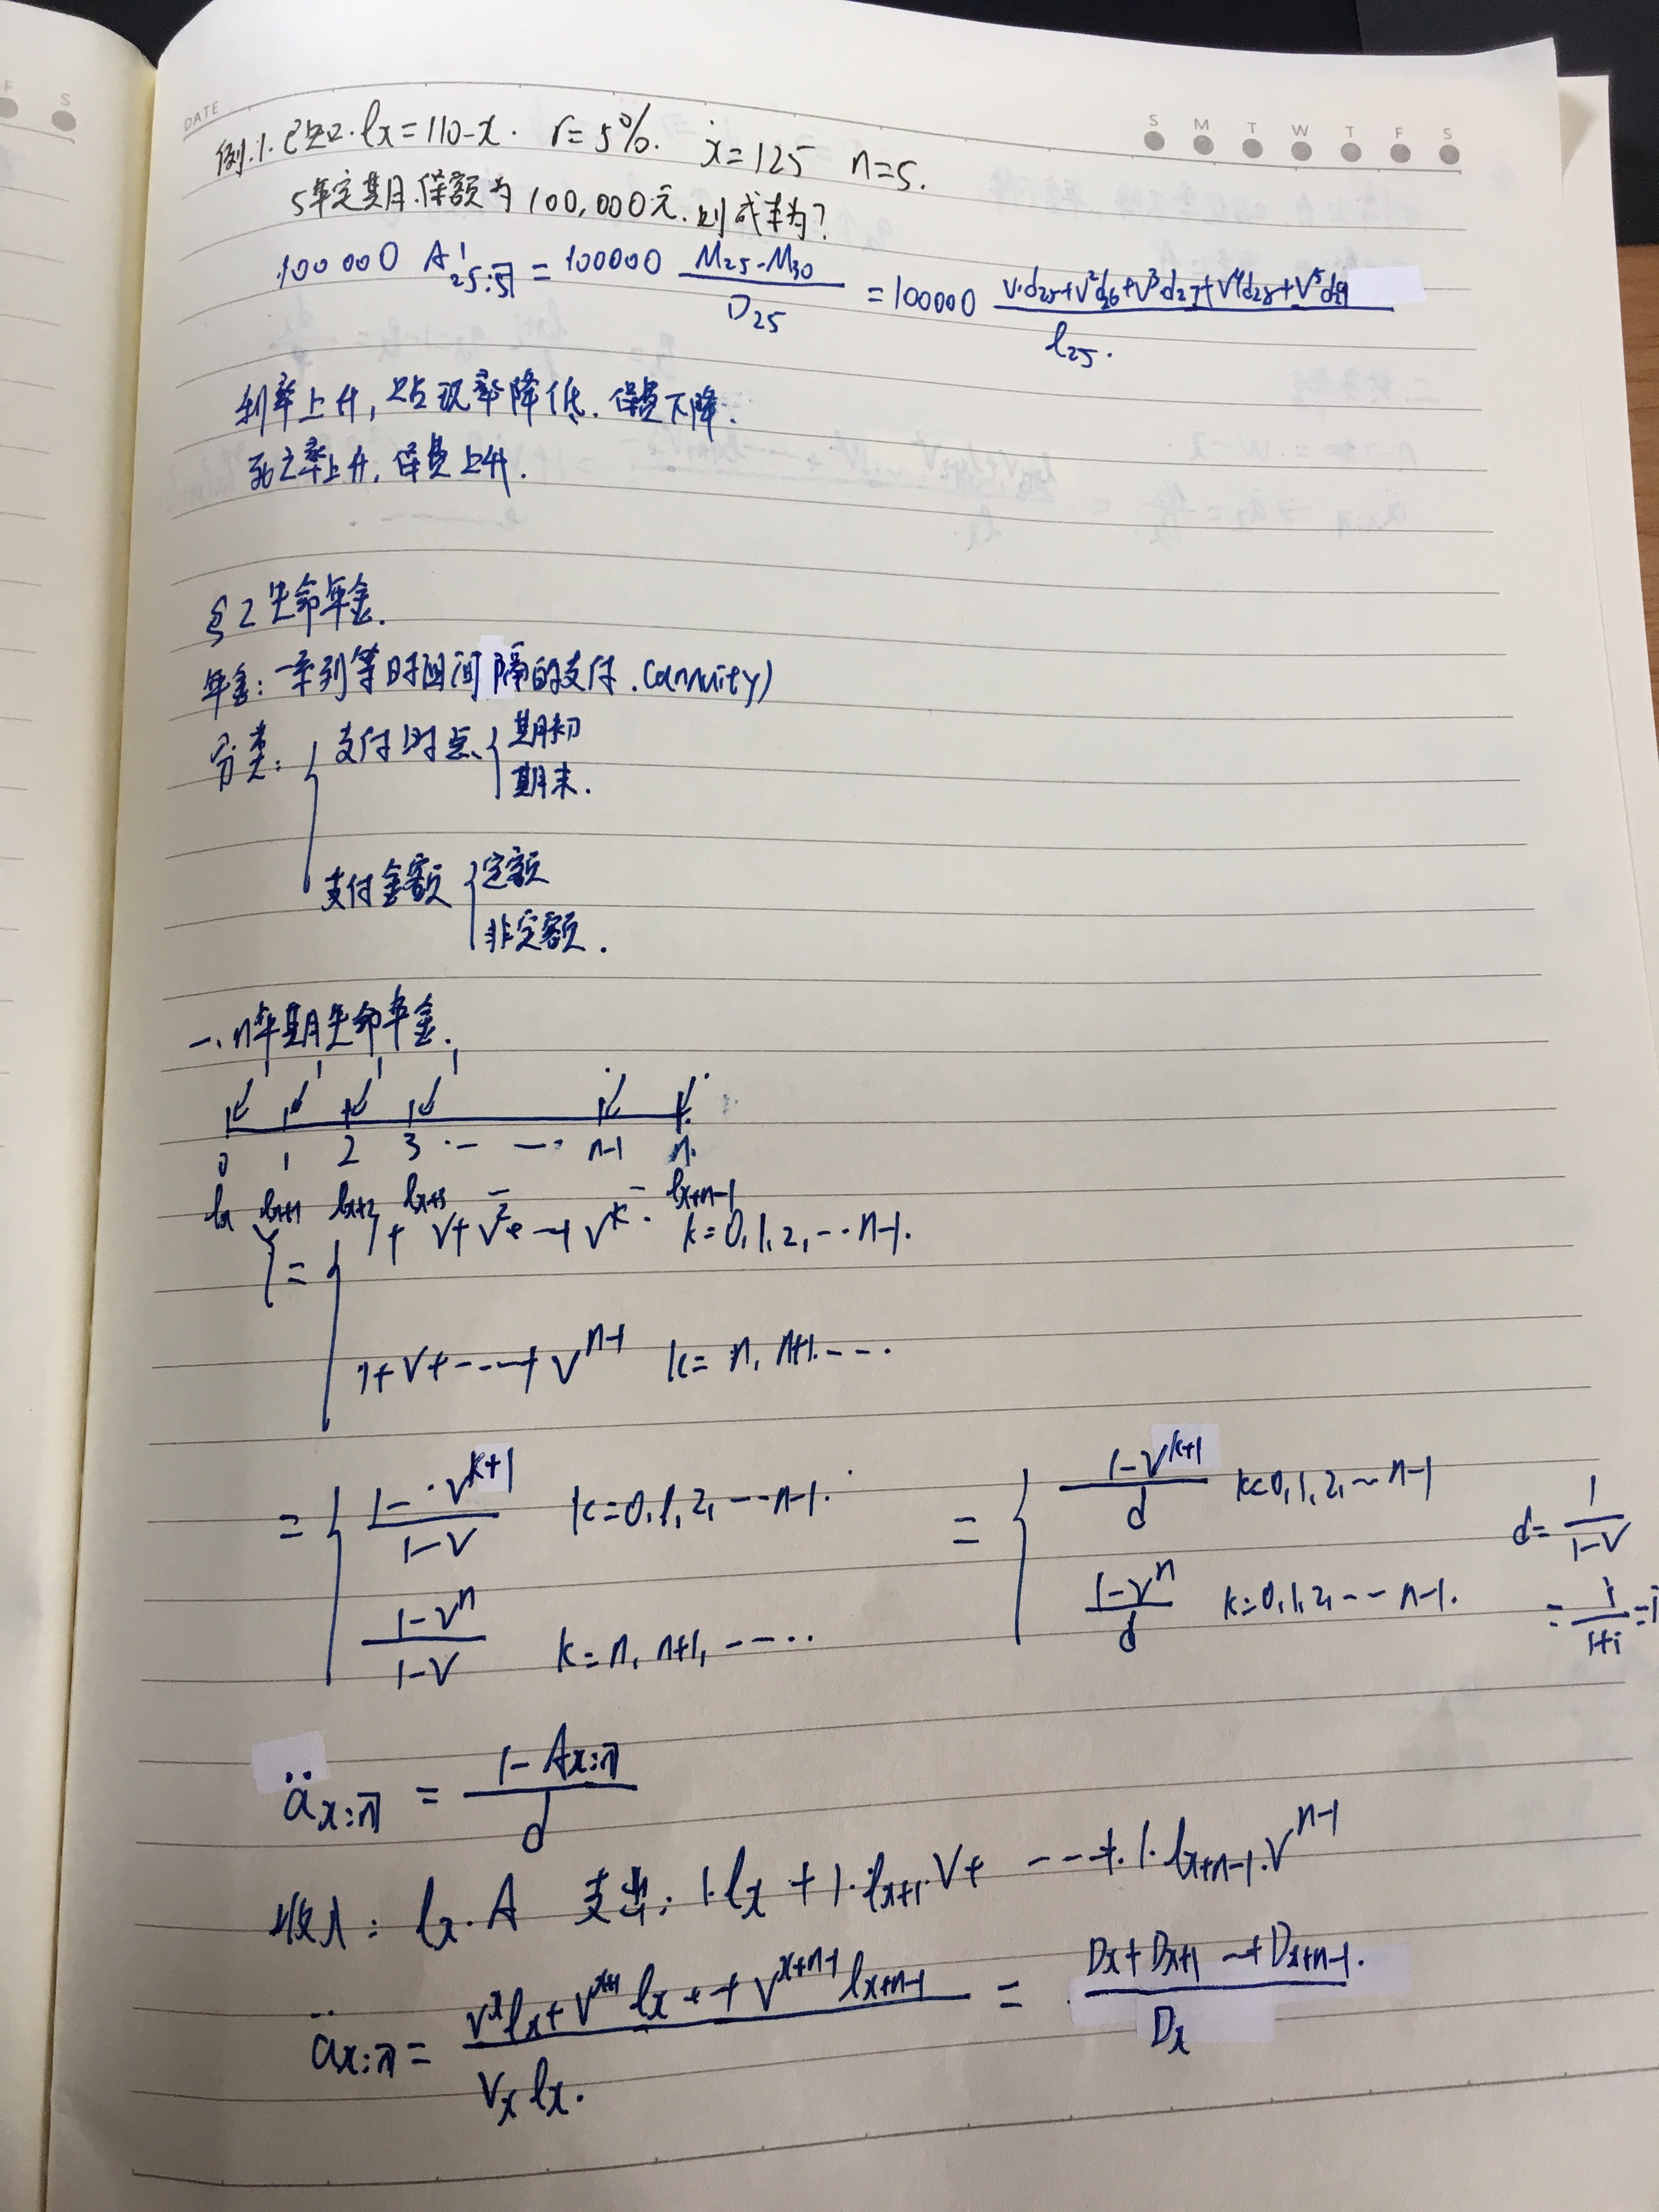 F S
DATE
S M T W T F S
例.1.已知.lx=110-x. r=5%. x=125 n=5.
5年定期.保额为100,000元.则成本为?
100 000 A¹25:5̅| = 100000 (M25-M30)/D25 = 100000 (v·d25+v²d26+v³d27+v⁴d28+v⁵d29)/l25.
利率上升,贴现率降低.保费下降.
死亡率上升,保费上升.
§2 生命年金.
年金:一系列等时间间隔的支付.(annuity)
分类: { 支付时点 { 期初
期末.
支付金额 { 定额
非定额.
一、n年期生命年金.
1 1 1 1
0 1 2 3 ·— —· n-1 n.
lx lx+1 lx+2 lx+3 — — lx+n-1
Y = { 1+v+v²+—+v^k. k=0,1,2,…n-1.
1+v+----+v^(n-1) k=n, n+1.---.
= { (1-v^(k+1))/(1-v) k=0,1,2,---n-1. = { (1-v^(k+1))/d k=0,1,2,~n-1 d=1/(1-v)
(1-v^n)/(1-v) k=n, n+1, ---.. (1-v^n)/d k=0,1,2,--n-1. = i/(1+i) =i
äx:n̅| = (1-Ax:n̅|)/d
收入: lx·A 支出: 1·lx+1·lx+1·v+ ---+1·lx+n-1·v^(n-1)
äx:n̅| = (v^x lx+v^(x+1) lx++v^(x+n-1) lx+n-1)/(vx lx.) = (Dx+Dx+1 —+Dx+n-1.)/Dx